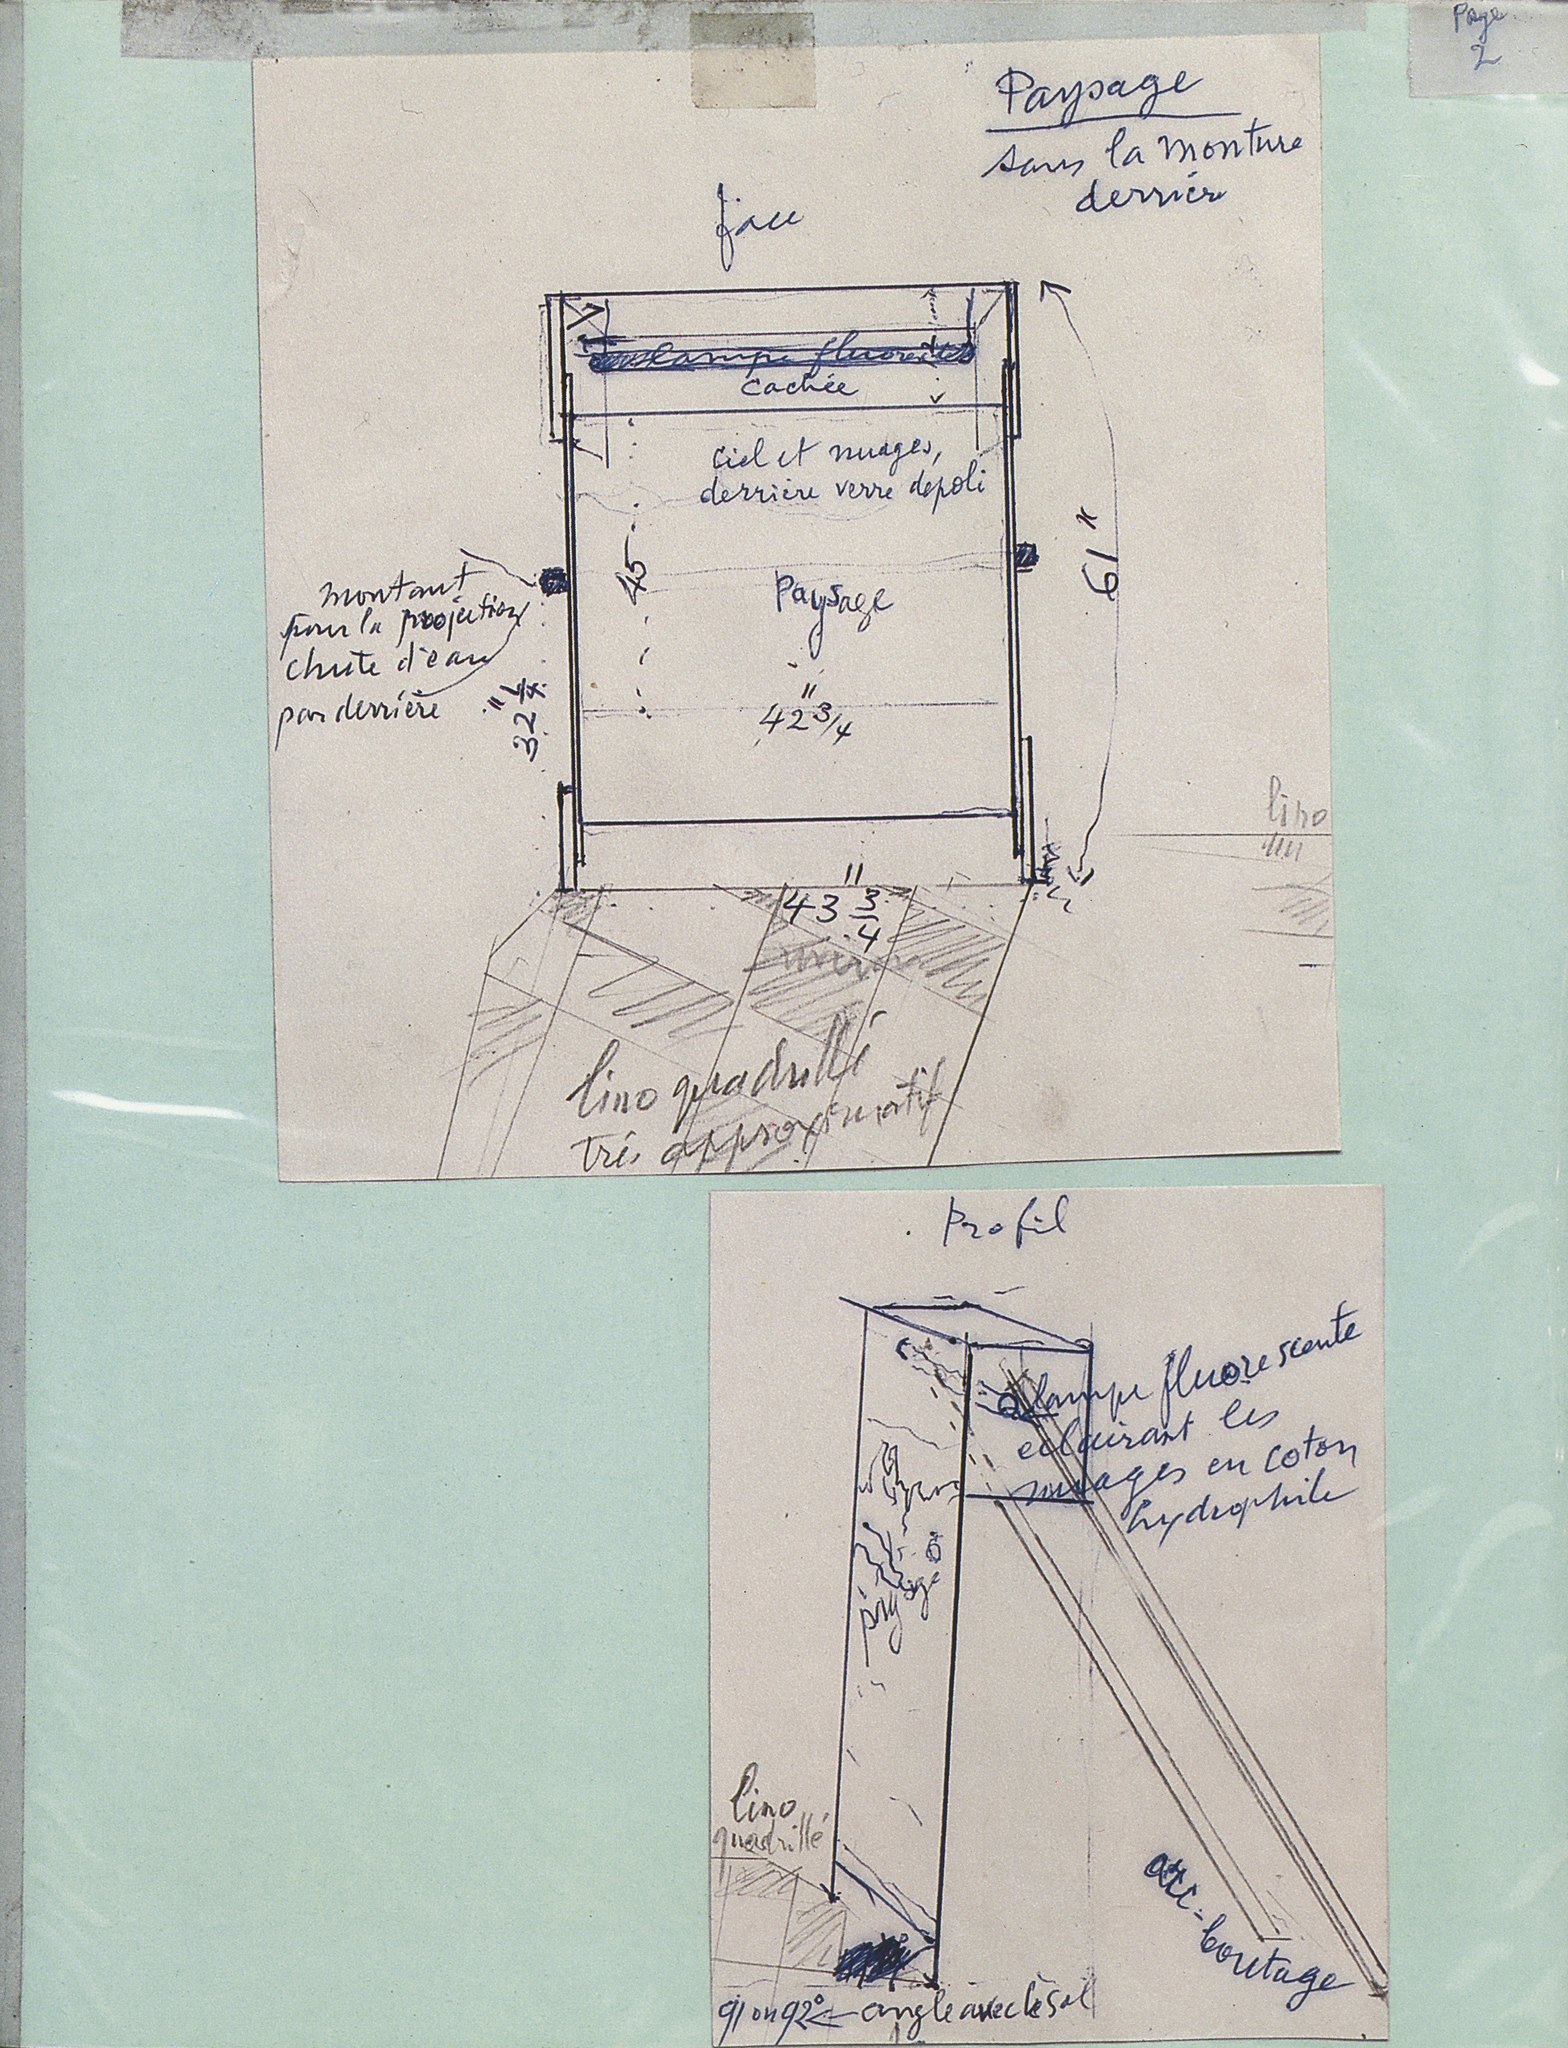 Page
2
Paysage
sans la monture
derrière
face
lampe fluorescente
cachée
ciel et nuages,
derrière verre depoli
45
61"
montant
pour la projection
chute d'eau
par derrière
Paysage
42 3/4"
lino
43 3/4"
lino quadrillé
très approximatif
Profil
lampe fluorescente
eclairant les
nuages en coton
hydrophile
paysage
lino
quadrillé
arc-boutage
91 ou 92° ← angle avec le sol